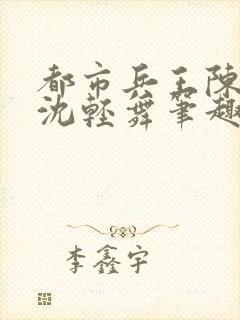 都市兵王陳
沈輕舞筆趣
李鑫宇